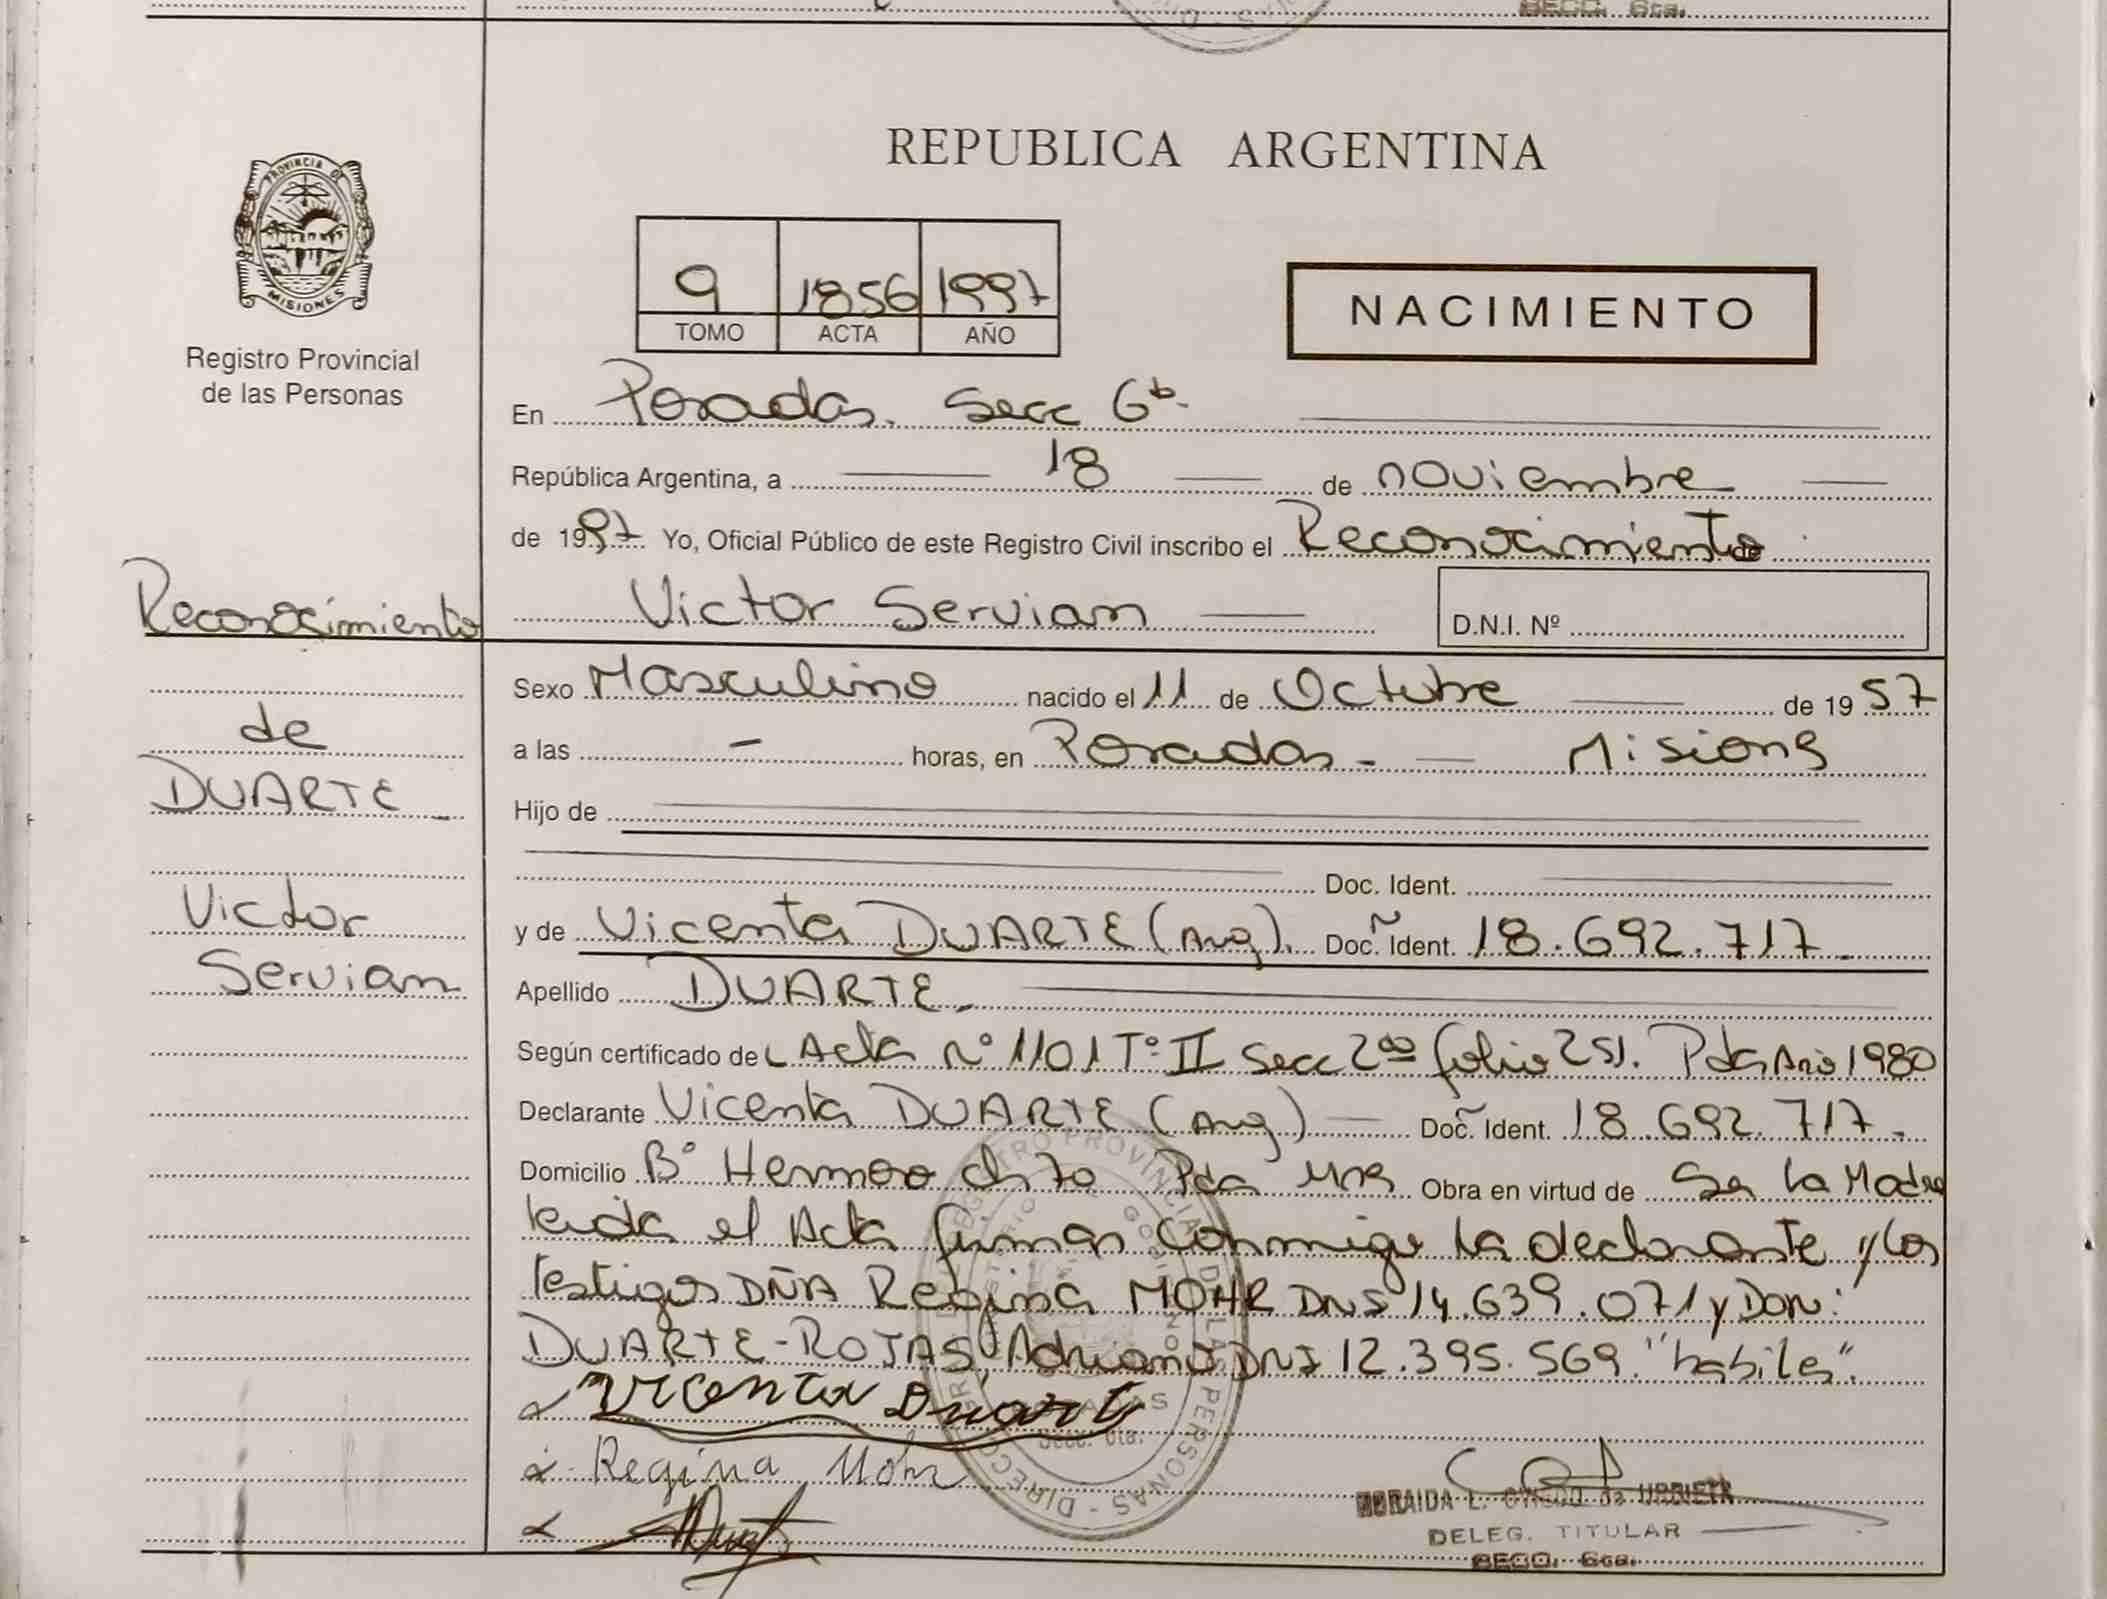 SECC. 6ta.
REPUBLICA ARGENTINA
PROVINCIA DE
MISIONES
Registro Provincial
de las Personas
9 1856 1997
TOMO ACTA AÑO
NACIMIENTO
En Posadas. Secc 6ta.
República Argentina, a 18 de noviembre
de 1997 Yo, Oficial Público de este Registro Civil inscribo el Reconocimiento de
Victor Servian D.N.I. Nº
Reconocimiento
de
DUARTE
Victor
Servian
Sexo Masculino nacido el 11 de Octubre de 1957
a las - horas, en Posadas - Misions
Hijo de
Doc. Ident.
y de Vicenta DUARTE (Arg). Doc. Ident. 18.692.717.
Apellido DUARTE.
Según certificado de Acta nº 1101 Tº II Secc 2da folio 251. Pdas Año 1980
Declarante Vicenta DUARTE (Arg) Doc. Ident. 18.692.717.
Domicilio Bº Hermoso Pdas Mns Obra en virtud de Ser la Madre
leida el Acta firman conmigo la declarante y los
testigos DÑA Regina MOHR DNI 14.639.071 y Don:
DUARTE-ROJAS, Adriano DNI 12.395.569. "habiles".
Vicenta Duarte
Regina Mohr
DELEG. TITULAR
SECC. 6ta.